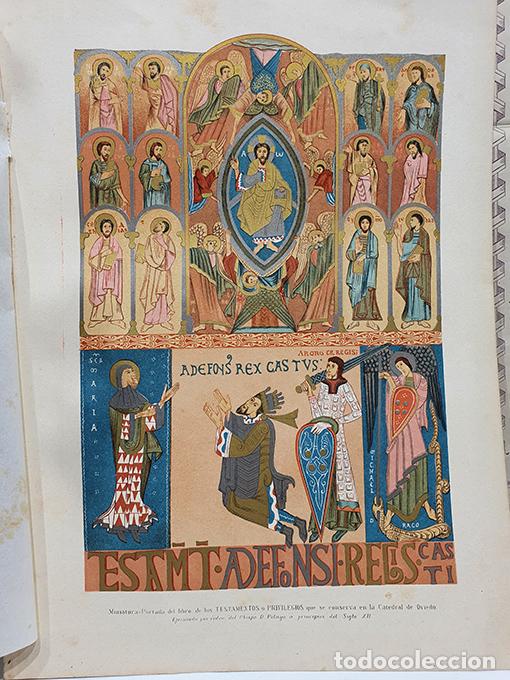 A ω
SCA
MARIA
ADEFONS REX CASTVS:
ARORO CE REGIS:
MICHAEL
DRACO
TESTAMT·ADEFONSI·REGIS·CASTI
Miniatura-Portada del libro de los TESTAMENTOS o PRIVILEGIOS que se conserva en la Catedral de Oviedo.
Ejecutada por orden del Obispo D. Pelayo a principios del Siglo XII
todocoleccion